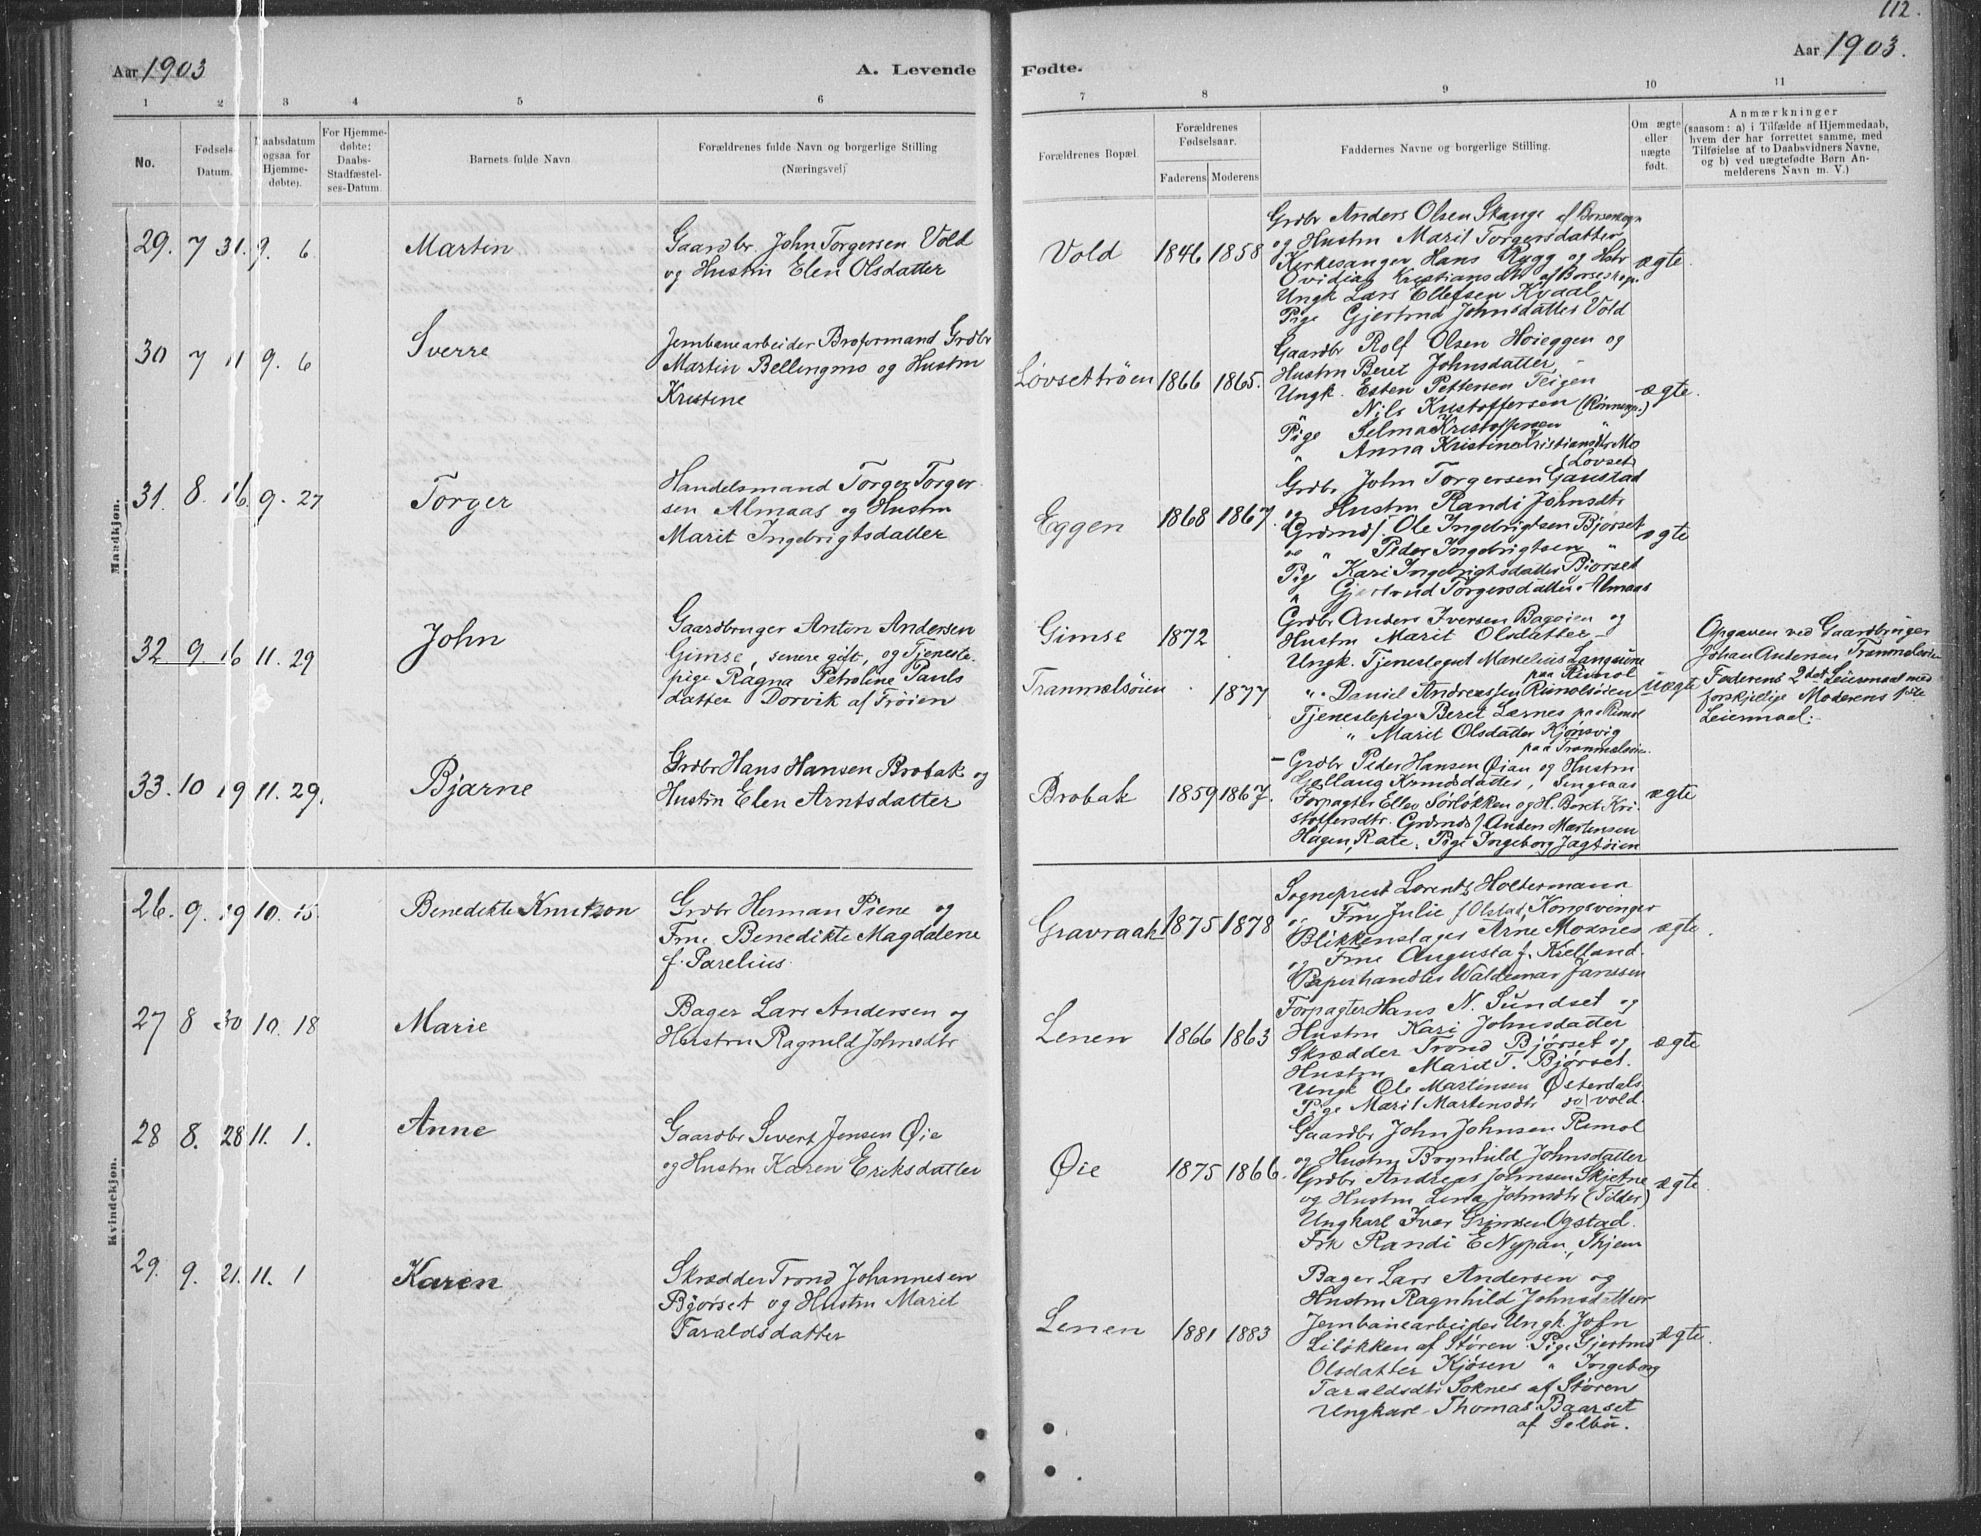 112.
Aar 1903
A. Levende
Fødte.
Aar 1903.
1 2 3 4 5 6 7 8 9 10 11
No.
Fødsels-
Datum.
Daabsdatum
(ogsaa for
Hjemme-
døbte).
For Hjemme-
døbte:
Daabs-
Stadfæstel-
ses-Datum.
Barnets fulde Navn
Forældrenes fulde Navn og borgerlige Stilling
(Næringsvei)
Forældrenes Bopæl.
Forældrenes
Fødselsaar.
Faderens Moderens
Faddernes Navne og borgerlige Stilling.
Om ægte
eller
uægte
født.
Anmærkninger
(saasom: a) i Tilfælde af Hjemmedaab,
hvem der har forrettet samme, med
Tilføielse af to Daabsvidners Navne,
og b) ved uægtefødte Børn An-
melderens Navn m. V.)
Mandkjøn.
29. 7 31. 9. 6
Martin
Gaardbr. John Torgersen Vold
og Hustru Elen Olsdatter
Vold
1846 1858
Grdbr Anders Olsen Skauge af Børseskogn
og Hustru Marit Torgersdatter
Kirkesanger Hans Rygg og Hstr
Ovidia Kristiansdtr af Børseskogn.
Ungk Lars Ellefsen Kvaal
Pige Gjertrud Johnsdatter Vold
ægte
30 7 11 9. 6
Sverre
Jernbanearbeider Broformand Grdbr
Martin Bellingmo og Hustru
Kristine
Løvsettrøen
1866 1865.
Gaardbr Rolf Olsen Høieggen og
Hustru Beret Johnsdatter
Ungk. Esten Pettersen Teigen
Nils Kristoffersen
Pige Selma Kristoffersen
" Anna Kristine Kristiansdtr Mo
(Løvset)
ægte.
31. 8. 16 9. 27
Torger
Handelsmand Torger Torger-
sen Almaas og Hustru
Marit Ingebrigtsdatter
Eggen
1868 1867.
Grdbr John Torgersen Gaustad
og Hustru Randi Johnsdtr
Grdmds/. Ole Ingebrigtsen Bjørset
do " Peder Ingebrigtsen "
Pige Kari Ingebrigtsdatter Bjørset
" Gjertrud Torgersdatter Almaas
ægte
32 9. 16 11. 29
John
Gaardbruger Anton Andersen
Gimse, senere gift, og Tjeneste-
pige Ragna Petroline Pauls
datter Dorvik af Frøien
Gimse
1872
Tranmælsøien
1877
Grdbr Anders Iversen Bagøien og
Hustru Marit Olsdatter –
Ungk. Tjenestegut Marelius Langsine
paa Rimol
" Daniel Andreassen Rimolsøien
Tjenestepige Beret Lernes paa Rimol
" Marit Olsdatter Kjønsvig
paa Tranmælsøien.
uægte
Opgaven ved Gaardbruger
Johan Andersen Tranmælsøien
Faderens 2det Leiermaal med
forskjellige Moderens 1ste
Leiermaal.
33. 10 19 11. 29.
Bjarne
Grdbr Hans Hansen Brobak og
Hustru Elen Arntsdatter
Brobak
1859 1867.
Grdbr Peder Hansen Øian og Hustru
Gollaug Knudsdatter, Singsaas
Forpagter Ellev Sørløkken og H. Beret Kri-
stoffersdtr. Grdmds/ Anders Martensen
Hagen, Rate. Pige Ingeborg Jagtøien
ægte
Kvindekjøn.
26. 9. 19 10. 15
Benedikte Knutzon
Grdbr Herman Piene og
Frue Benedikte Magdalene
f. Parelius.
Gravraak
1875 1878
Sogneprest Lorentz Holtermann
og Frue Julie f. Olstad, Kongsvinger
Blikkenslager Arne Moxnes
og Frue Augusta f. Kielland.
Papirhandler Waldemar Janssen
ægte.
27 8 30 10. 18
Marie
Bager Lars Andersen og
Hustru Ragnild Johnsdtr
Lenen
1866 1863
Forpagter Hans N. Sundset og
Hustru Kari Johnsdatter
Skrædder Trond Bjørset og
Hustru Marit T. Bjørset.
Ungk Ole Martinsen Østerdals
Pige Marit Martensdtr do/ vold.
ægte
28 8. 28 11. 1.
Anne
Gaardbr Sivert Jensen Øie
og Hustru Karen Eriksdatter
Øie
1875 1866.
Gaardbr John Johnsen Rimol
og Hustru Brynhild Johnsdatter
Grdbr Andreas Johnsen Skjetne
og Hustru Lena Johnsdtr (Tilder)
Ungkarl Iver Grimsen Ogstad.
Frk Randi E Nypan, Thjem
ægte.
29. 9. 21. 11. 1
Karen
Skrædder Trond Johannesen
Bjørset og Hustru Marit
Taraldsdatter
Lenen
1881 1883
Bager Lars Andersen og
Hustru Ragnhild Johnsdatter
Jernbanearbeider Ungk. John
Liløkken af Støren. Pige Gjertrud
Olsdatter Kjøsen " Ingeborg
Taraldsdtr Soknes af Støren
Ungkarl Thomas Baarset
af Selbu.
ægte.